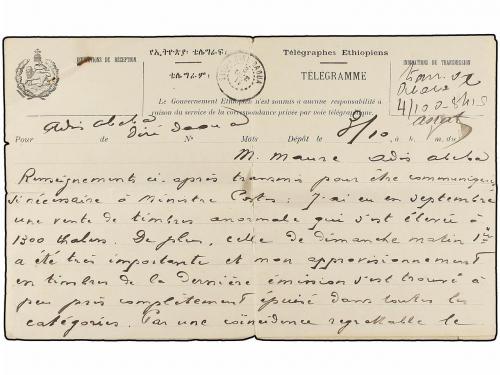 የኢትዮጵያ፡ ቴሌግራፍ፡
Télégraphes Ethiopiens
INDICATIONS DE RÉCEPTION
ቴሌግራም፡
TÉLÉGRAMME
INDICATIONS DE TRANSMISSION
4/10
Le Gouvernement Ethiopien n'est soumis a aucune responsabilité à
raison du service de la correspondance privée par voie télégraphique.
Pour Adis Abeba de Diré Daoua No Mots Dépôt 3/10 à h. m. du
M. Maure Adis Abeba
Renseignements ci-après transmis pour être communiqués
si nécessaire à Ministre Postes : J'ai eu en septembre
une vente de timbres anormale qui s'est élevée à
1300 thalers. De plus, celle de dimanche matin 1er
a été très importante et mon approvisionnement
en timbres de la dernière émission s'est trouvé à
peu près complètement épuisé dans toutes les
catégories. Par une coïncidence regrettable le